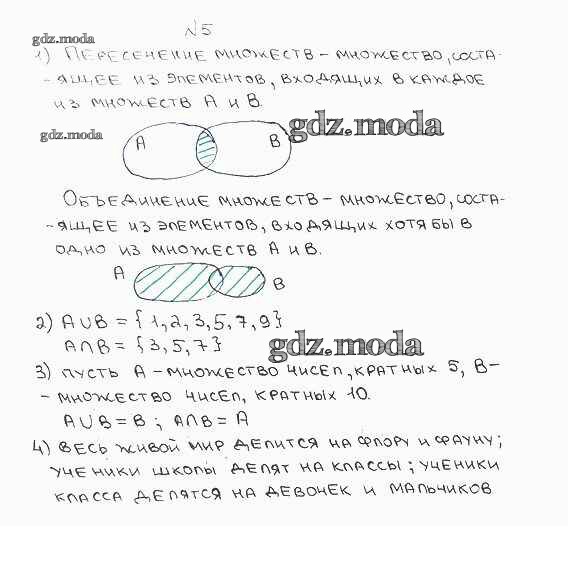 №5
gdz.moda
1) Пересечение множеств – множество, соста-
-ящее из элементов, входящих в каждое
из множеств А и В.
gdz.moda
gdz.moda
А В
Объединение множеств – множество, соста-
-ящее из элементов, входящих хотя бы в
одно из множеств А и В.
А В
2) A∪B = {1,2,3,5,7,9}
A∩B = {3,5,7}
gdz.moda
3) пусть А – множество чисел, кратных 5, В–
– множество чисел, кратных 10.
A∪B = B ; A∩B = A
4) весь живой мир делится на флору и фауну;
ученики школы делят на классы; ученики
класса делятся на девочек и мальчиков